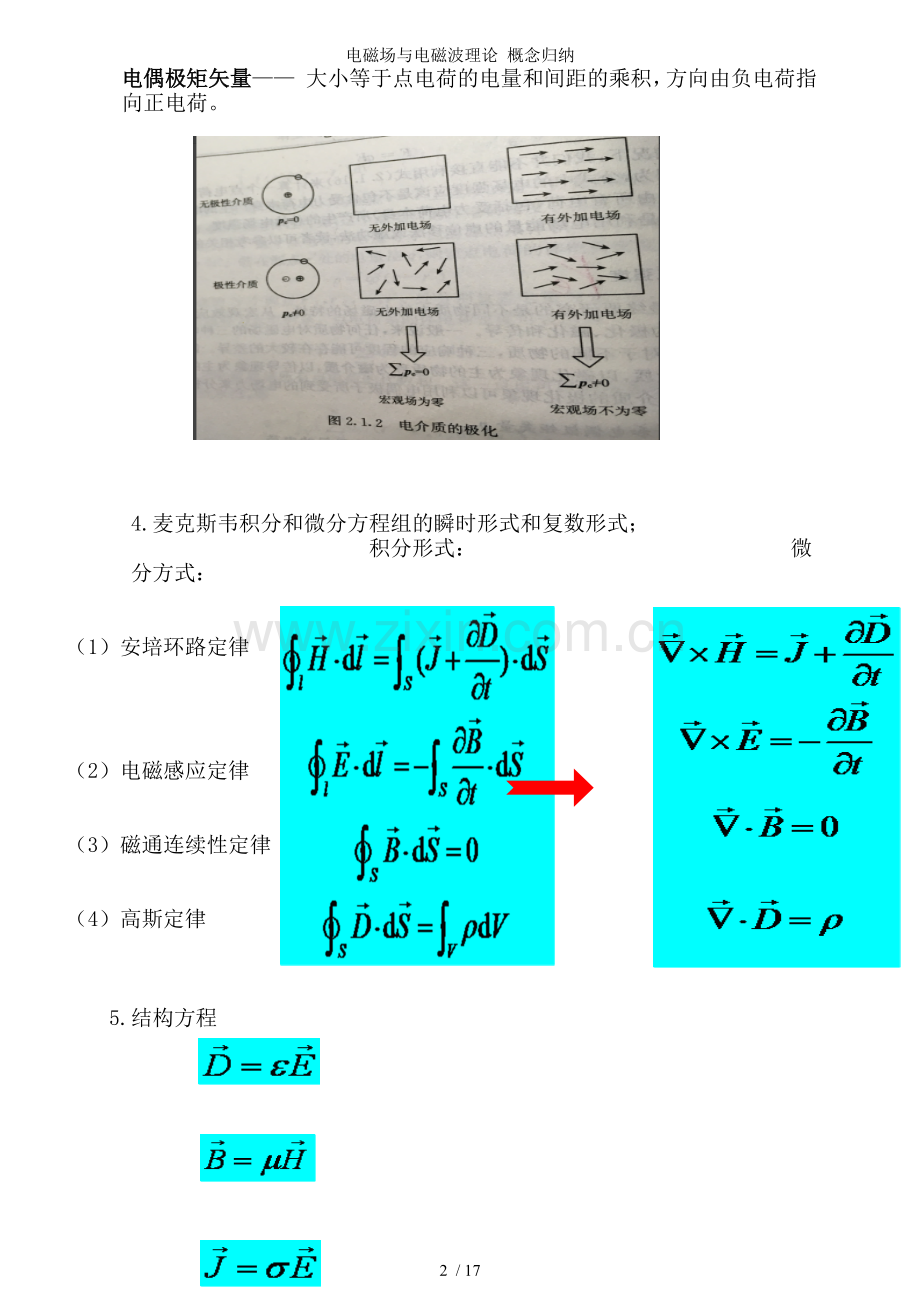 电磁场与电磁波理论 概念归纳
电偶极矩矢量—— 大小等于点电荷的电量和间距的乘积，方向由负电荷指
向正电荷。
无极性介质
pₑ=0
无外加电场
有外加电场
极性介质
pₑ≠0
无外加电场
有外加电场
∑pₑ=0
∑pₑ≠0
宏观场为零
宏观场不为零
图 2.1.2 电介质的极化
4.麦克斯韦积分和微分方程组的瞬时形式和复数形式；
积分形式： 微
分方式：
www.zixin.com.cn
（1）安培环路定律 ∮ₗ H⃗·dl⃗ = ∫_S (J⃗ + ∂D⃗/∂t)·dS⃗ ∇⃗×H⃗ = J⃗ + ∂D⃗/∂t
（2）电磁感应定律 ∮ₗ E⃗·dl⃗ = −∫_S ∂B⃗/∂t·dS⃗ ∇⃗×E⃗ = −∂B⃗/∂t
（3）磁通连续性定律 ∮_S B⃗·dS⃗ = 0 ∇⃗·B⃗ = 0
（4）高斯定律 ∮_S D⃗·dS⃗ = ∫_V ρdV ∇⃗·D⃗ = ρ
5.结构方程
D⃗ = εE⃗
B⃗ = μH⃗
J⃗ = σE⃗
2 / 17